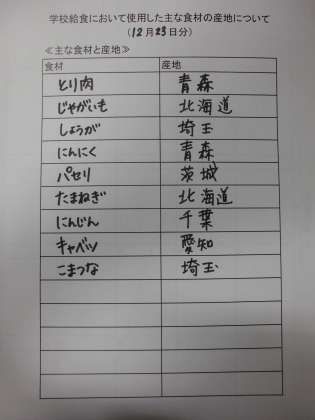 学校給食において使用した主な食材の産地について
(12月23日分)
≪主な食材と産地≫
食材 産地
とり肉 青森
じゃがいも 北海道
しょうが 埼玉
にんにく 青森
パセリ 茨城
たまねぎ 北海道
にんじん 千葉
キャベツ 愛知
こまつな 埼玉